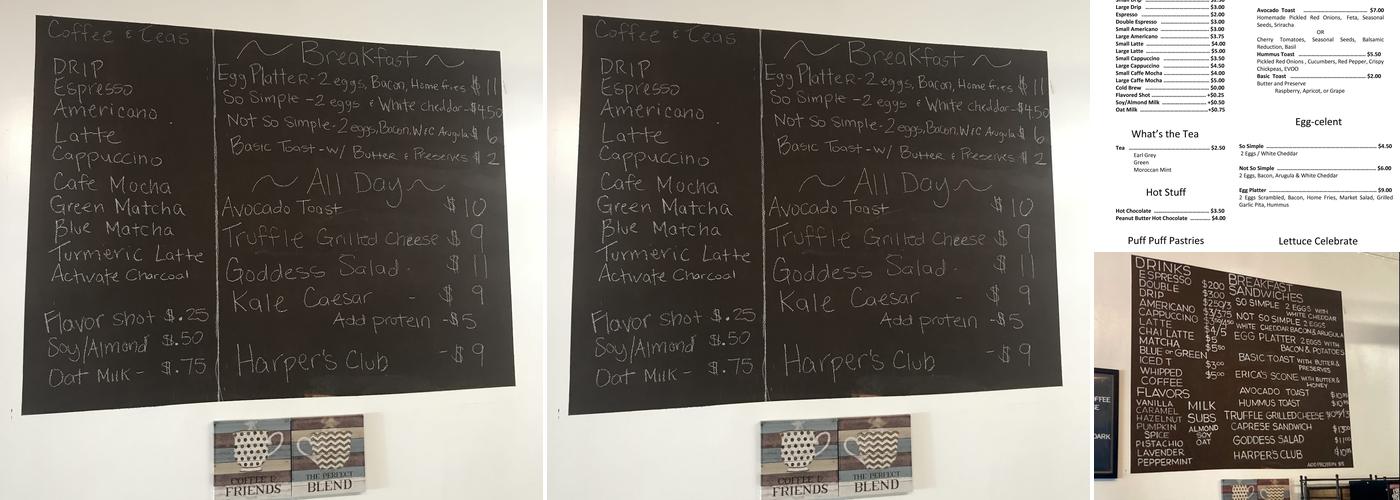 Coffee & Teas
DRIP
Espresso
Americano
Latte
Cappuccino
Cafe Mocha
Green Matcha
Blue Matcha
Turmeric Latte
Activate Charcoal
Flavor Shot $.25
Soy/Almond $.50
Oat Milk - $.75
~ Breakfast ~
Egg Platter - 2 eggs, Bacon, Home fries $11
So Simple - 2 eggs & White cheddar - $4.50
Not So Simple - 2 eggs, Bacon, W&C Arugula $6
Basic Toast - w/ Butter & Preserves $2
~ All Day ~
Avocado Toast $10
Truffle Grilled Cheese $9
Goddess Salad - $11
Kale Caesar - $9
Add protein - $5
Harper's Club - $9
COFFEE & FRIENDS
THE PERFECT BLEND
Coffee & Teas
DRIP
Espresso
Americano
Latte
Cappuccino
Cafe Mocha
Green Matcha
Blue Matcha
Turmeric Latte
Activate Charcoal
Flavor Shot $.25
Soy/Almond $.50
Oat Milk - $.75
~ Breakfast ~
Egg Platter - 2 eggs, Bacon, Home fries $11
So Simple - 2 eggs & White cheddar - $4.50
Not So Simple - 2 eggs, Bacon, W&C Arugula $6
Basic Toast - w/ Butter & Preserves $2
~ All Day ~
Avocado Toast $10
Truffle Grilled Cheese $9
Goddess Salad - $11
Kale Caesar - $9
Add protein - $5
Harper's Club - $9
COFFEE & FRIENDS
THE PERFECT BLEND
Large Drip $3.00
Espresso $2.00
Double Espresso $3.00
Small Americano $3.00
Large Americano $3.75
Small Latte $4.00
Large Latte $5.00
Small Cappuccino $3.50
Large Cappuccino $4.50
Small Caffe Mocha $4.00
Large Caffe Mocha $5.00
Cold Brew $0.00
Flavored Shot +$0.25
Soy/Almond Milk +$0.50
Oat Milk +$0.75
What's the Tea
Tea $2.50
Earl Grey
Green
Moroccan Mint
Hot Stuff
Hot Chocolate $3.50
Peanut Butter Hot Chocolate $4.00
Puff Puff Pastries
Avocado Toast $7.00
Homemade Pickled Red Onions, Feta, Seasonal
Seeds, Sriracha
OR
Cherry Tomatoes, Seasonal Seeds, Balsamic
Reduction, Basil
Hummus Toast $5.50
Pickled Red Onions , Cucumbers, Red Pepper, Crispy
Chickpeas, EVOO
Basic Toast $2.00
Butter and Preserve
Raspberry, Apricot, or Grape
Egg-celent
So Simple $4.50
2 Eggs / White Cheddar
Not So Simple $6.00
2 Eggs, Bacon, Arugula & White Cheddar
Egg Platter $9.00
2 Eggs Scrambled, Bacon, Home Fries, Market Salad, Grilled
Garlic Pita, Hummus
Lettuce Celebrate
DRINKS
ESPRESSO $2.00
DOUBLE $3.00
DRIP $2.50/3
AMERICANO $3/3.75
CAPPUCCINO
LATTE $4/5
CHAI LATTE $5
MATCHA $5.50
BLUE OR GREEN
ICED T $3.00
WHIPPED $5.00
COFFEE
FLAVORS
VANILLA
CARAMEL
HAZELNUT
PUMPKIN
SPICE
PISTACHIO
LAVENDER
PEPPERMINT
MILK
SUBS
ALMOND
SOY
OAT
BREAKFAST
SANDWICHES
SO SIMPLE 2 EGGS WITH
WHITE CHEDDAR
NOT SO SIMPLE 2 EGGS
WHITE CHEDDAR BACON & ARUGULA
EGG PLATTER 2 EGGS WITH
BACON & POTATOES
BASIC TOAST WITH BUTTER &
PRESERVES
ERICA'S SCONE WITH BUTTER &
HONEY
AVOCADO TOAST
HUMMUS TOAST
TRUFFLE GRILLED CHEESE
CAPRESE SANDWICH
GODDESS SALAD $11.00
HARPER'S CLUB
ADD PROTEIN
DARK